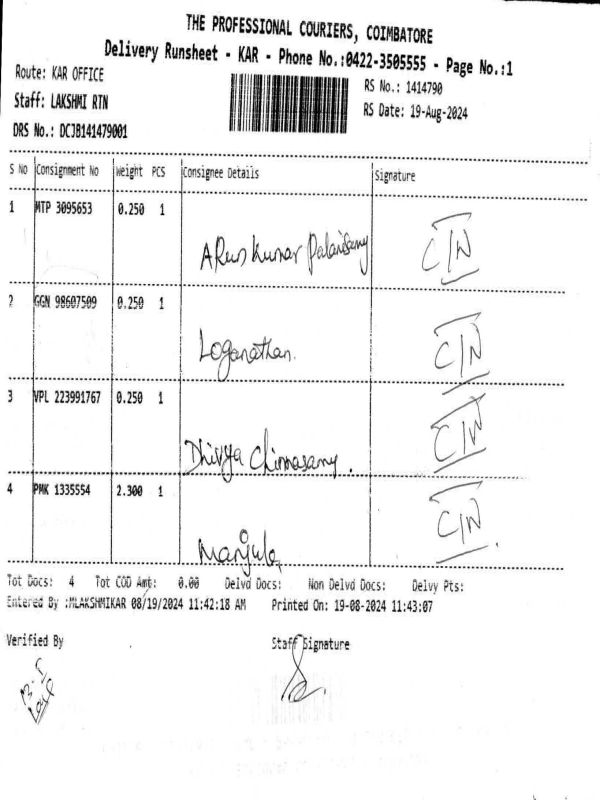 THE PROFESSIONAL COURIERS, COIMBATORE
Delivery Runsheet - KAR - Phone No.:0422-3505555 - Page No.:1
Route: KAR OFFICE
RS No.: 1414790
Staff: LAKSHMI RTN
RS Date: 19-Aug-2024
DRS No.: DCJB141479001
S No Consignment No Weight PCS Consignee Details Signature
1 MTP 3095653 0.250 1
Arun Kumar Palanisamy C/N
2 GGN 98607509 0.250 1
Loganathan. C/N
3 VPL 223991767 0.250 1
Dhivya Chinnasamy. C/N
4 PMK 1335554 2.300 1
Manjula C/N
Tot Docs: 4 Tot COD Amt: 0.00 Delvd Docs: Non Delvd Docs: Delvy Pts:
Entered By :MLAKSHMIKAR 08/19/2024 11:42:18 AM Printed On: 19-08-2024 11:43:07
Verified By Staff Signature